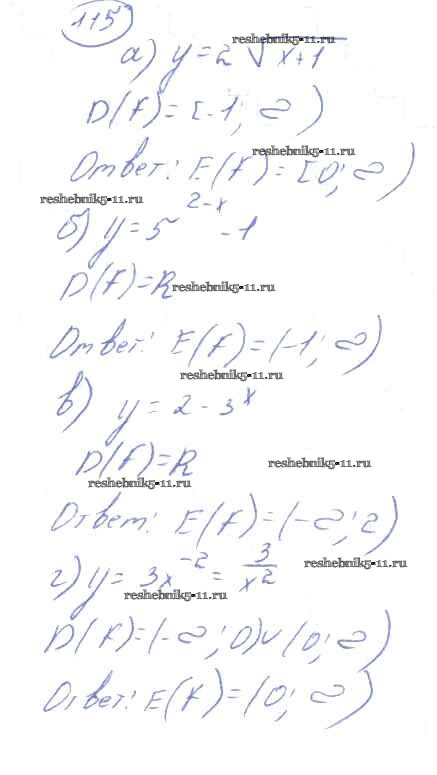 115
reshebnik5-11.ru
а) y = 2√x+1
D(f) = [-1; ∞)
reshebnik5-11.ru
Ответ: E(f) = [0; ∞)
reshebnik5-11.ru
б) y = 5^2-x - 1
D(f) = R
reshebnik5-11.ru
Ответ: E(f) = (-1; ∞)
reshebnik5-11.ru
в) y = 2 - 3^x
D(f) = R
reshebnik5-11.ru
reshebnik5-11.ru
Ответ: E(f) = (-∞; 2)
г) y = 3x^-2 = 3/x^2
reshebnik5-11.ru
reshebnik5-11.ru
D(f) = (-∞; 0) ∪ (0; ∞)
Ответ: E(f) = (0; ∞)